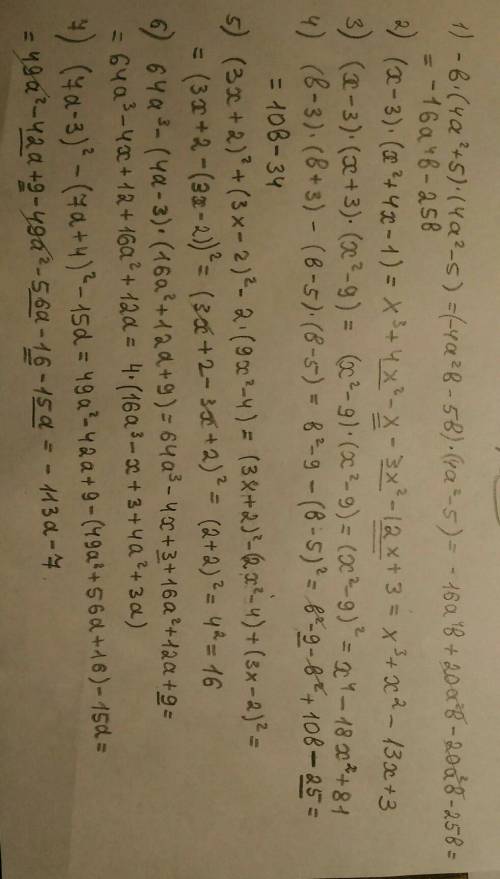 1) -в·(4a²+5)·(4a²-5) = (-4a²в-5в)·(4a²-5) = -16a⁴в+20a²в-20a²в-25в=
= -16a⁴в-25в
2) (x-3)·(x²+4x-1) = x³+4x²-x-3x²-12x+3 = x³+x²-13x+3
3) (x-3)·(x+3)·(x²-9) = (x²-9)·(x²-9) = (x²-9)² = x⁴-18x²+81
4) (в-3)·(в+3)-(в-5)·(в-5) = в²-9-(в-5)² = в²-9-в²+10в-25=
= 10в-34
5) (3x+2)²+(3x-2)²-2·(9x²-4) = (3x+2)²-(2x²-4)+(3x-2)²=
= (3x+2-(3x-2))² = (3x+2-3x+2)² = (2+2)² = 4² = 16
6) 64a³-(4a-3)·(16a²+12a+9) = 64a³-4x+3+16a²+12a+9=
= 64a³-4x+12+16a²+12a = 4·(16a³-x+3+4a²+3a)
7) (7a-3)²-(7a+4)²-15a = 49a²-42a+9-(49a²+56a+16)-15a=
= 49a²-42a+9-49a²-56a-16-15a = -113a-7